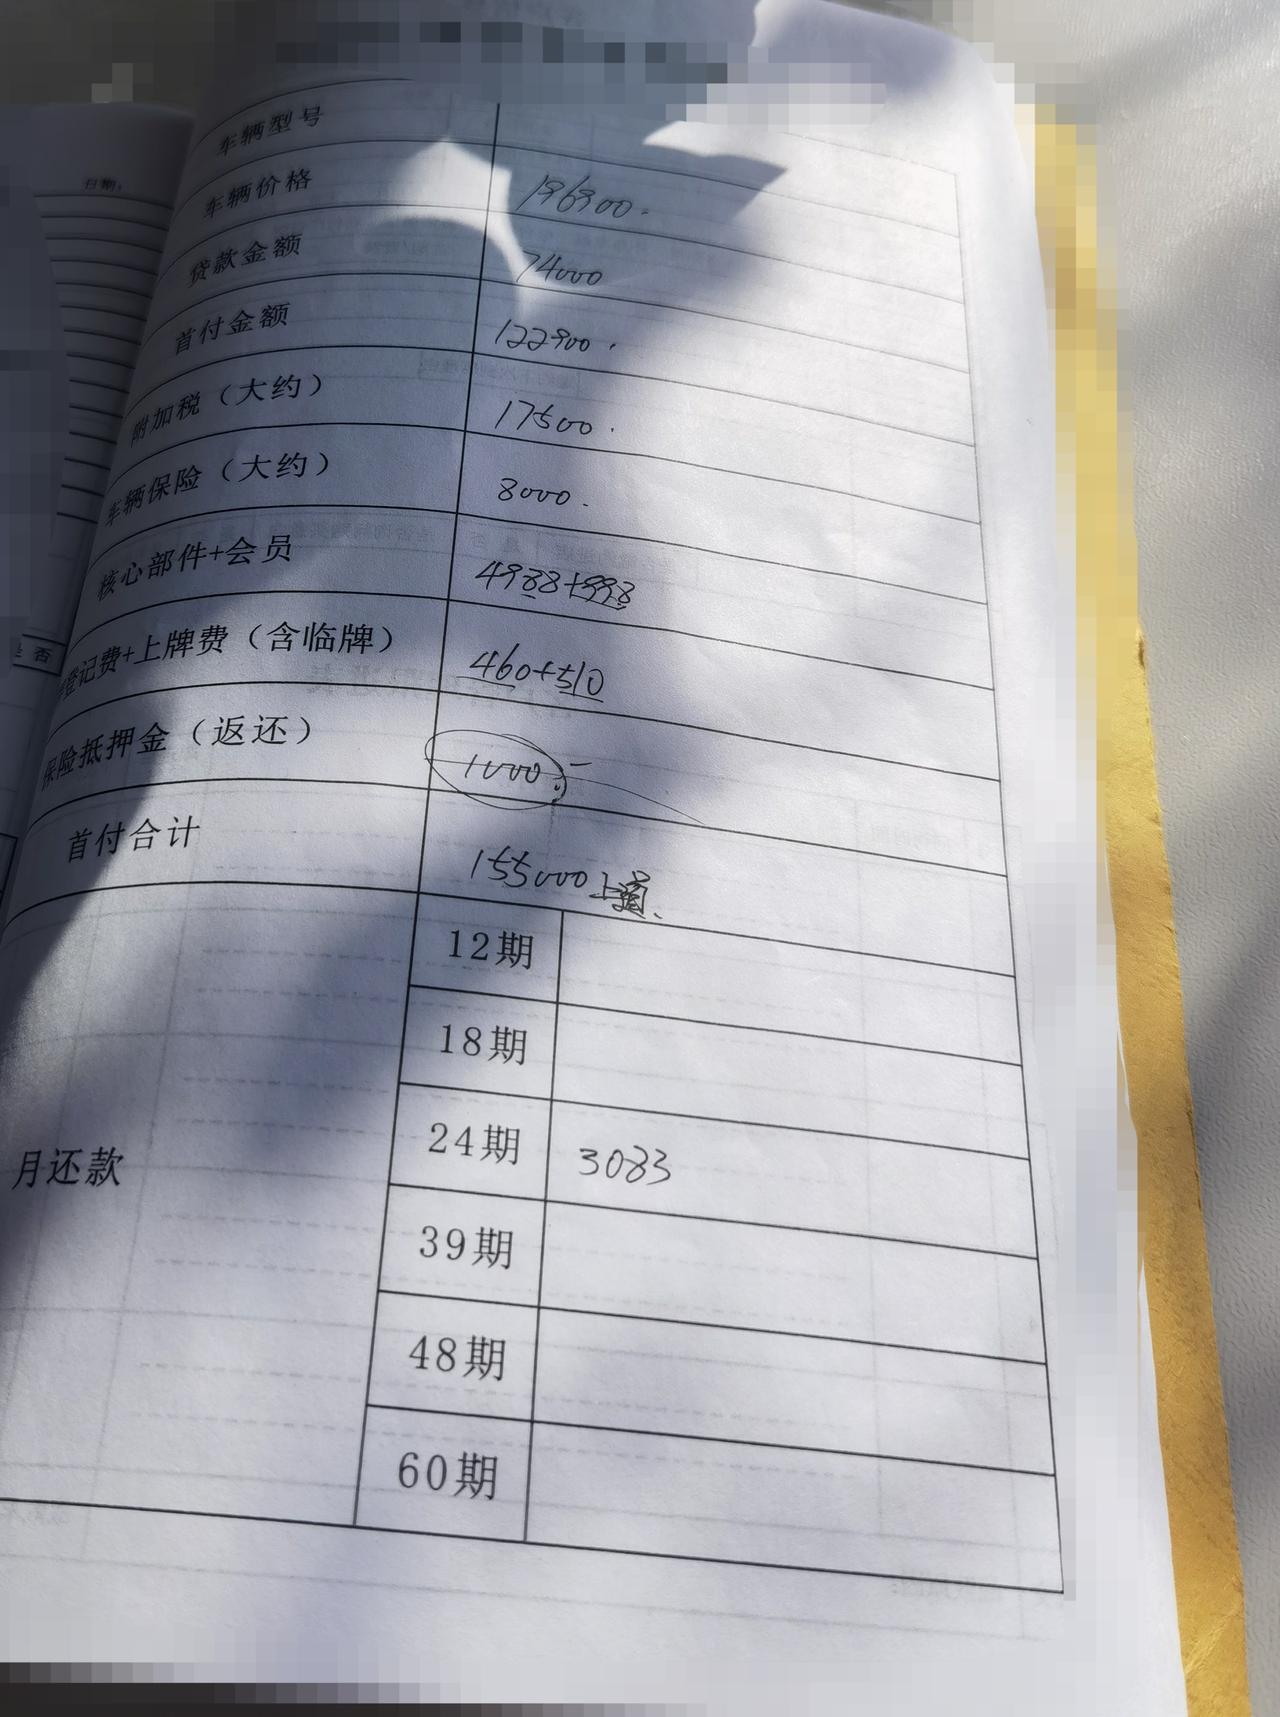 日期:
车辆型号
车辆价格 196900.
贷款金额 74000
首付金额 122900.
附加税（大约） 17500.
车辆保险（大约） 8000.
核心部件+会员 4988+998
登记费+上牌费（含临牌） 460+510
是 否
保险抵押金（返还） 1000.-
首付合计 155000上
月还款
12期
18期
24期 3083
39期
48期
60期